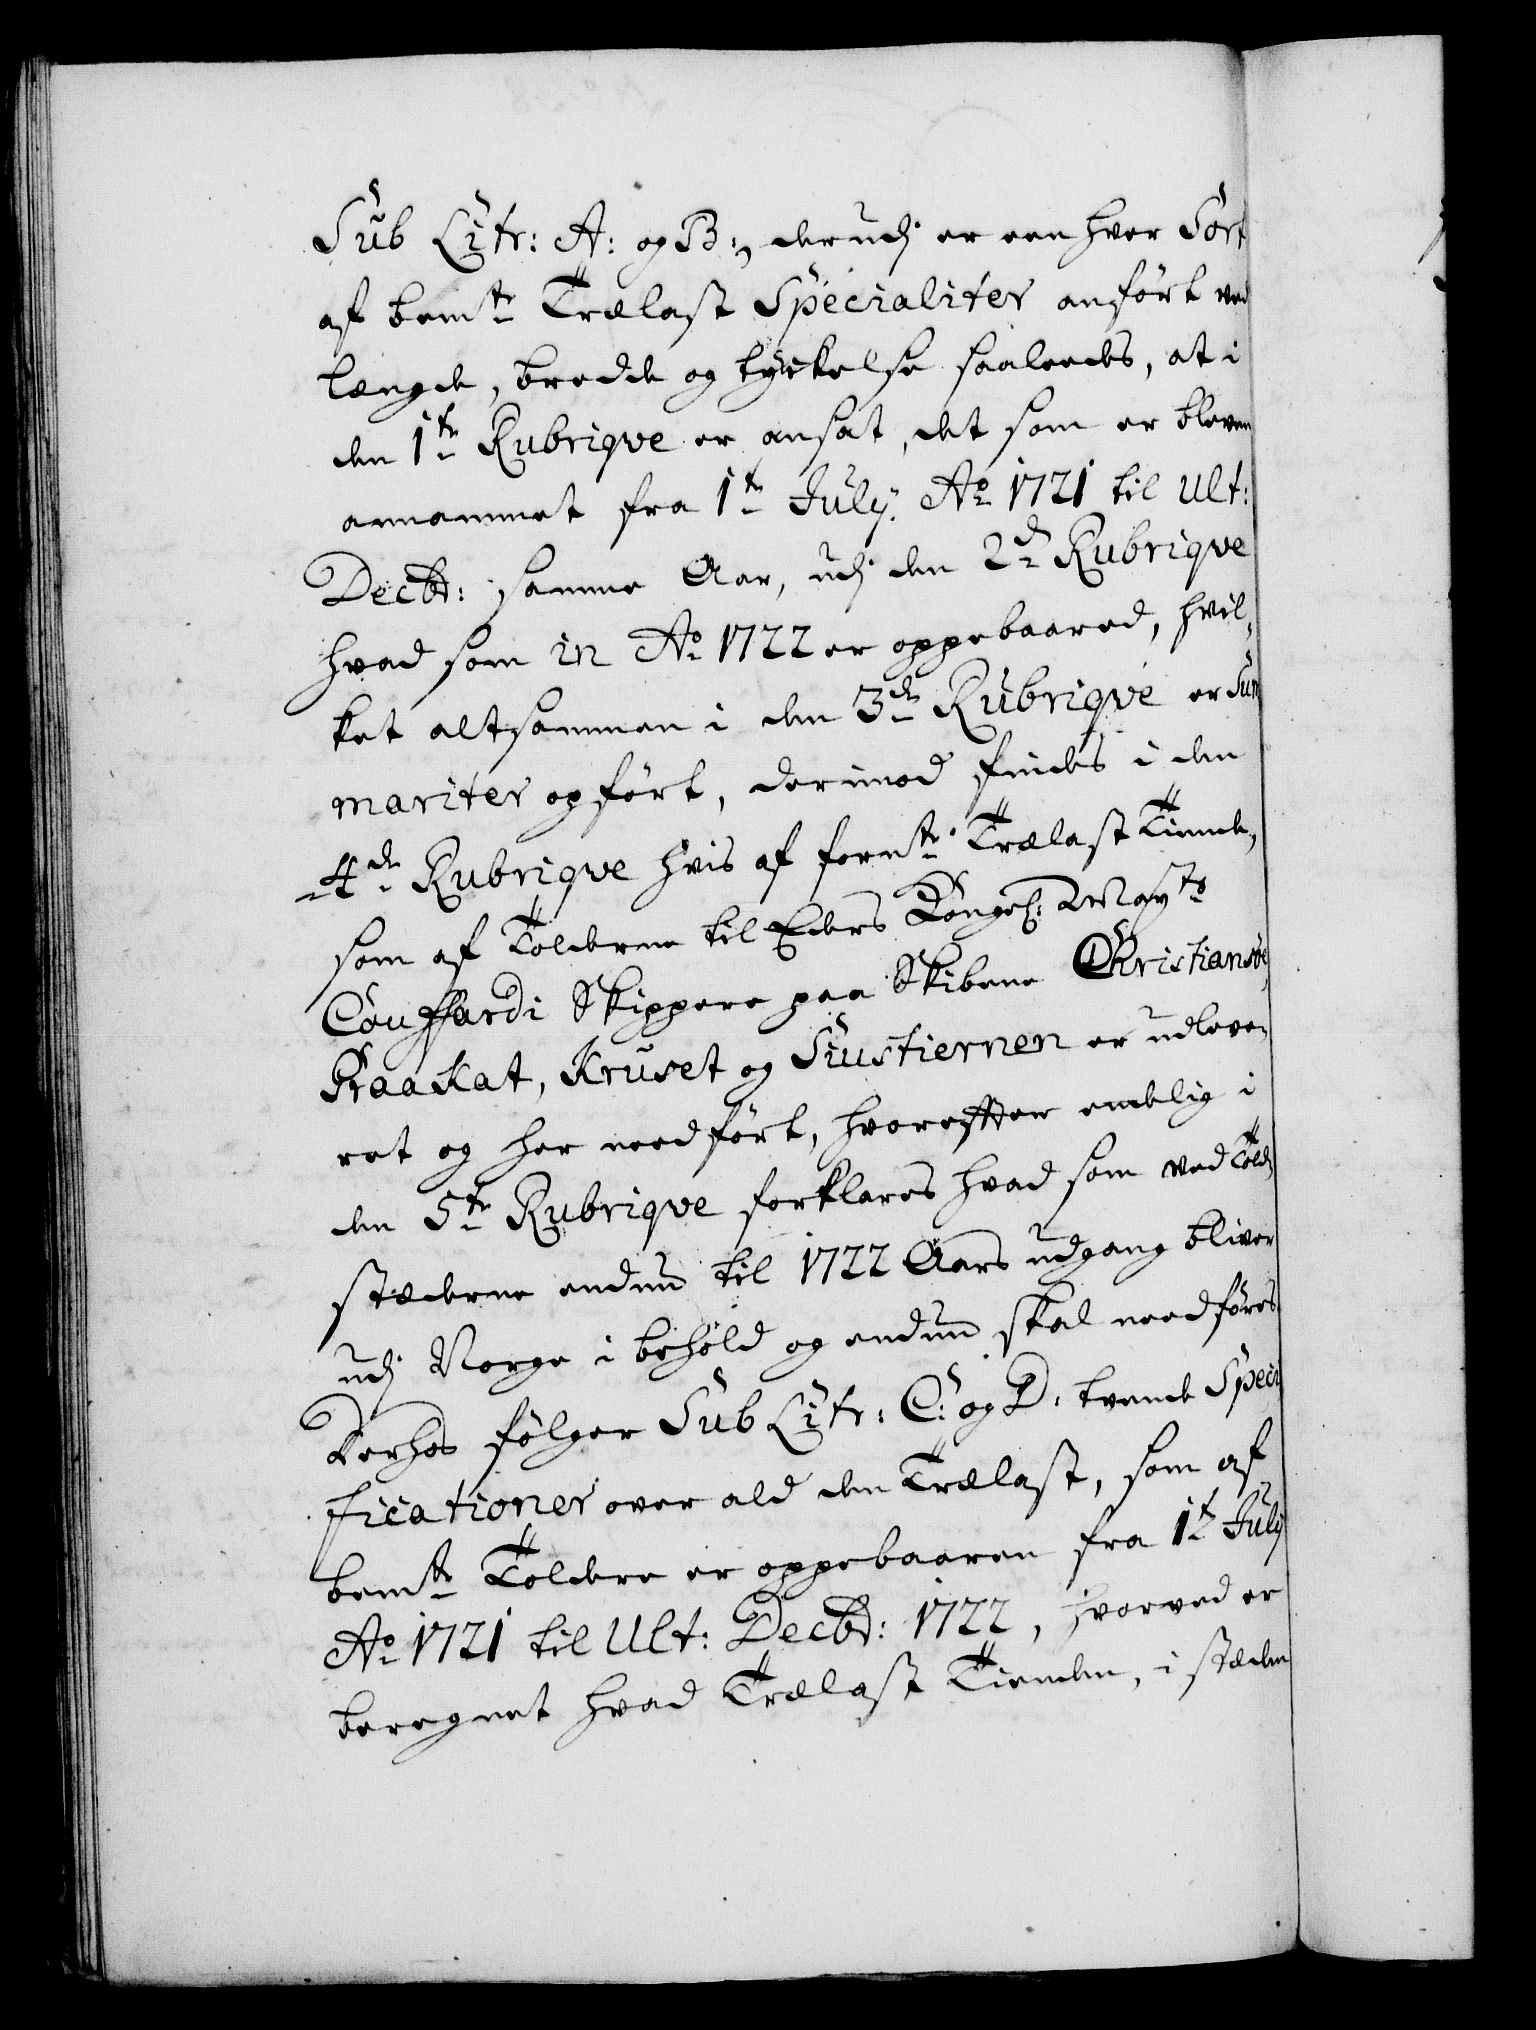 Sub Litr: A: og B:, derudj er een hver Sort
af bemte Trælast Specialiter anført ved
længde, bredde og tyckelse saaleedes, at i
den 1te Rubriqve er ansat, det som er bleven
annammet fra 1te July Ao 1721 til Ult:
Decbr: samme Aar, udj den 2d Rubriqve
hvad som in Ao 1722 er oppebaared, hvil-
ket altsammen i den 3de Rubriqve er Sum
mariter opført, derimod findes i den
4de Rubriqve hvis af formte Trælast Tiende,
som af Tolderne til Eders Kongel: Mayts
Couffardi Skippere paa Skibene Christiansöe,
Kraakat, Kruset og Siustiernen er udleve-
ret og her needført, hvorefter endelig i
den 5te Rubriqve forklares hvad som ved Told-
stæderne endnu til 1722 Aars udgang bliver
udj Norge i behold og endnu skal needføres.
Derhos følger Sub Litr: C: og D: tvende Speci
ficationer over ald den Trælast, som af
bemte Toldere er oppebaaren fra 1te July
Ao 1721 til Ult: Decbr: 1722, hvorved er
beregnet hvad Trælast Tienden, i stæden